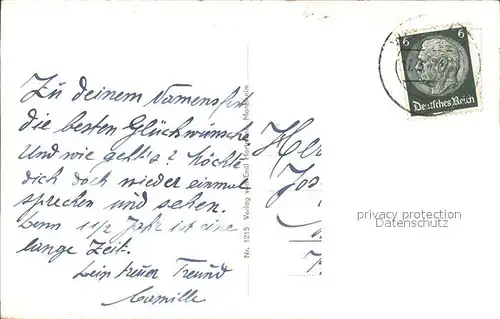 Zu deinem Namensfest
die besten Glückwünsche
Und wie geht's? Möchte
dich doch wieder einmal
sprechen und sehen.
Denn 1 1/2 Jahr ist eine
lange Zeit.
Dein treuer Freund
Camille
Nr. 1215 Verlag von Emil
Her
Jos
6 6
Deutsches Reich
privacy protection
Datenschutz